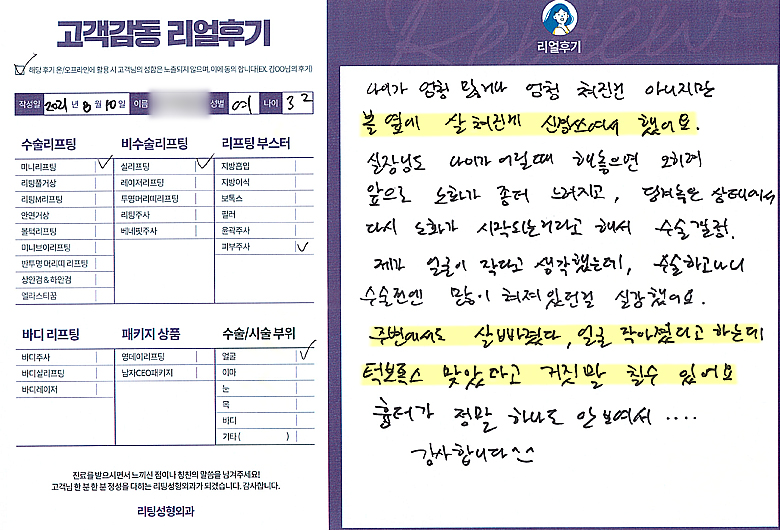 고객감동 리얼후기
해당 후기 온/오프라인에 활용 시 고객님의 성함은 노출되지 않으며, 이에 동의 합니다(EX. 김OO님의 후기)
작성일 2021 년 8 월 10 일 이름 성별 여 나이 32
수술리프팅 비수술리프팅 리프팅 부스터
미니리프팅 실리프팅 지방흡입
리팅풀거상 레이저리프팅 지방이식
리팅M리프팅 투명머리띠리프팅 보톡스
안면거상 리팅주사 필러
볼턱리프팅 베네핏주사 윤곽주사
미니브이리프팅 피부주사
반투명 머리띠 리프팅
상안검 & 하안검
엘라스티꿈
바디 리프팅 패키지 상품 수술/시술 부위
바디주사 영데이리프팅 얼굴
바디실리프팅 남자CEO패키지 이마
바디레이저 눈
목
바디
기타 ( )
진료를 받으시면서 느끼신 점이나 칭찬의 말씀을 남겨주세요!
고객님 한 분 한 분 정성을 다하는 리팅성형외과가 되겠습니다. 감사합니다.
리팅성형외과
Review
리얼후기
나이가 엄청 많거나 엄청 쳐진건 아니지만
볼 옆에 살 쳐진게 신경쓰여서 했어요.
실장님도 나이가 어릴때 해놓으면 오히려
앞으로 노화가 좀더 느려지고, 당겨놓은 상태에서
다시 노화가 시작되는거라고 해서 수술결정.
제가 얼굴이 작다고 생각했는데, 수술하고나니
수술전엔 많이 쳐져있던걸 실감했어요.
주변에서도 살빠졌다, 얼굴 작아졌다고 하는데
턱보톡스 맞았다고 거짓말 칠수 있어요
흉터가 정말 하나도 안보여서 ....
감사합니다^^